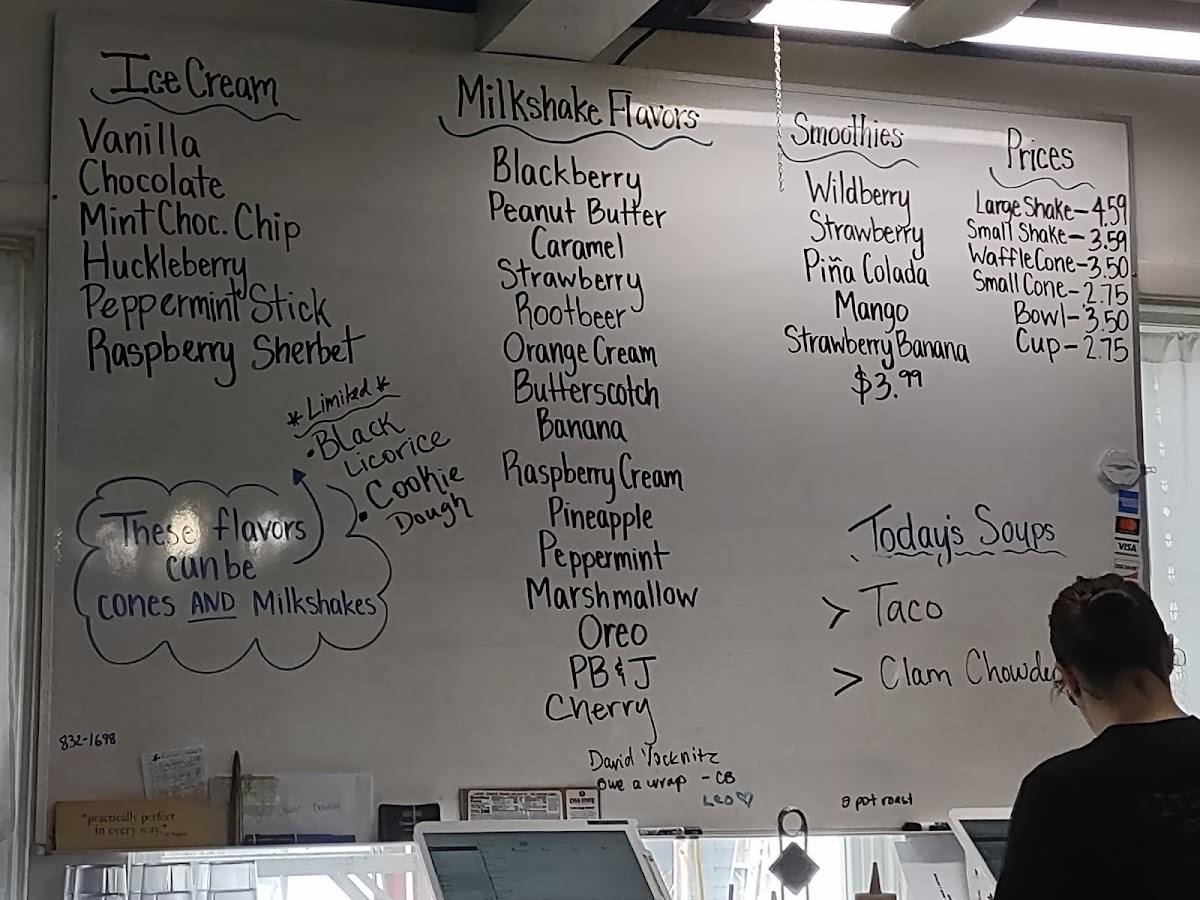 Ice Cream
Vanilla
Chocolate
Mint Choc. Chip
Huckleberry
Peppermint Stick
Raspberry Sherbet
*Limited*
• Black
Licorice
• Cookie
Dough
These flavors
can be
cones AND Milkshakes
832-1698
"practically perfect
in every way."
Milkshake Flavors
Blackberry
Peanut Butter
Caramel
Strawberry
Rootbeer
Orange Cream
Butterscotch
Banana
Raspberry Cream
Pineapple
Peppermint
Marshmallow
Oreo
PB & J
Cherry
David
owe a wrap - CB
Leo
Smoothies
Wildberry
Strawberry
Piña Colada
Mango
Strawberry Banana
$3.99
Prices
Large Shake - 4.59
Small Shake - 3.59
Waffle Cone - 3.50
Small Cone - 2.75
Bowl - 3.50
Cup - 2.75
VISA
Today's Soups
> Taco
> Clam Chowde
pot roast